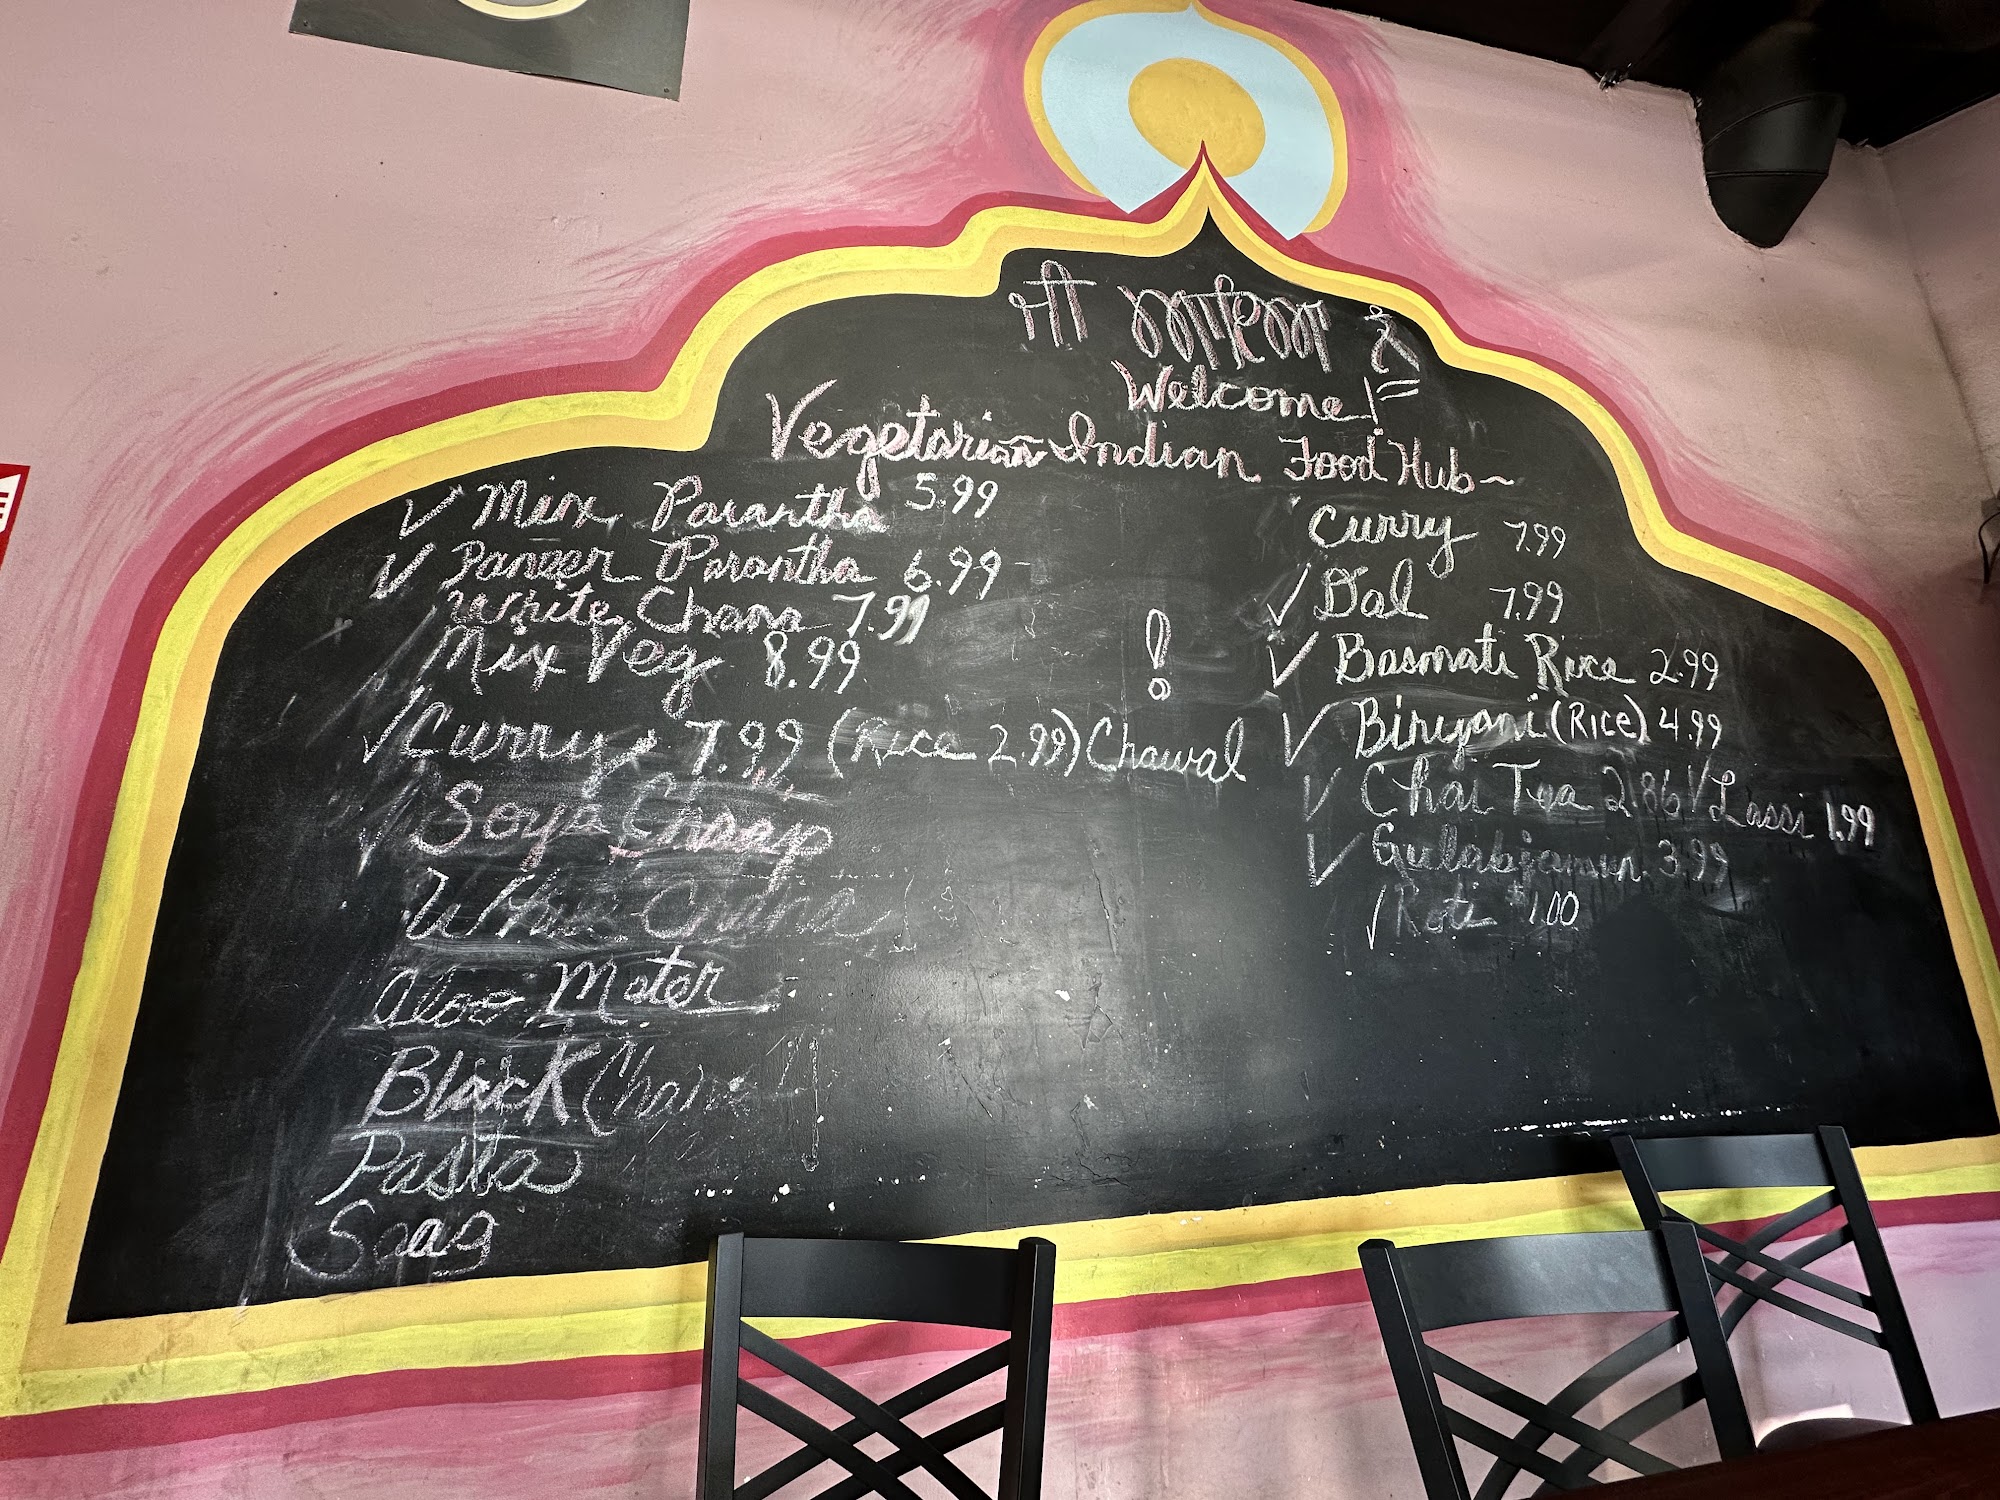 ਜੀ ਆਇਆ ਨੂੰ
Welcome!
Vegetarian Indian Food Hub~
✓ Mix Parantha 5.99
✓ Paneer Parantha 6.99
White Chana 7.99
Mix Veg 8.99
✓ Curry 7.99 (Rice 2.99) Chawal
✓ Soya Chaap
White Chana
Aloo Mater
Black Chana
Pasta
Saag
!
Curry 7.99
✓ Dal 7.99
✓ Basmati Rice 2.99
✓ Biryani (Rice) 4.99
✓ Chai Tea 2.86 ✓ Lassi 1.99
✓ Gulabjamun 3.99
✓ Roti $1.00